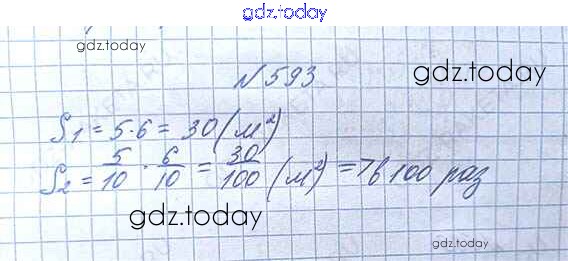 gdz.today
gdz.today
N 593
gdz.today
S₁ = 5·6 = 30 (м²)
S₂ = 5/10 · 6/10 = 30/100 (м²) => в 100 раз
gdz.today
gdz.today